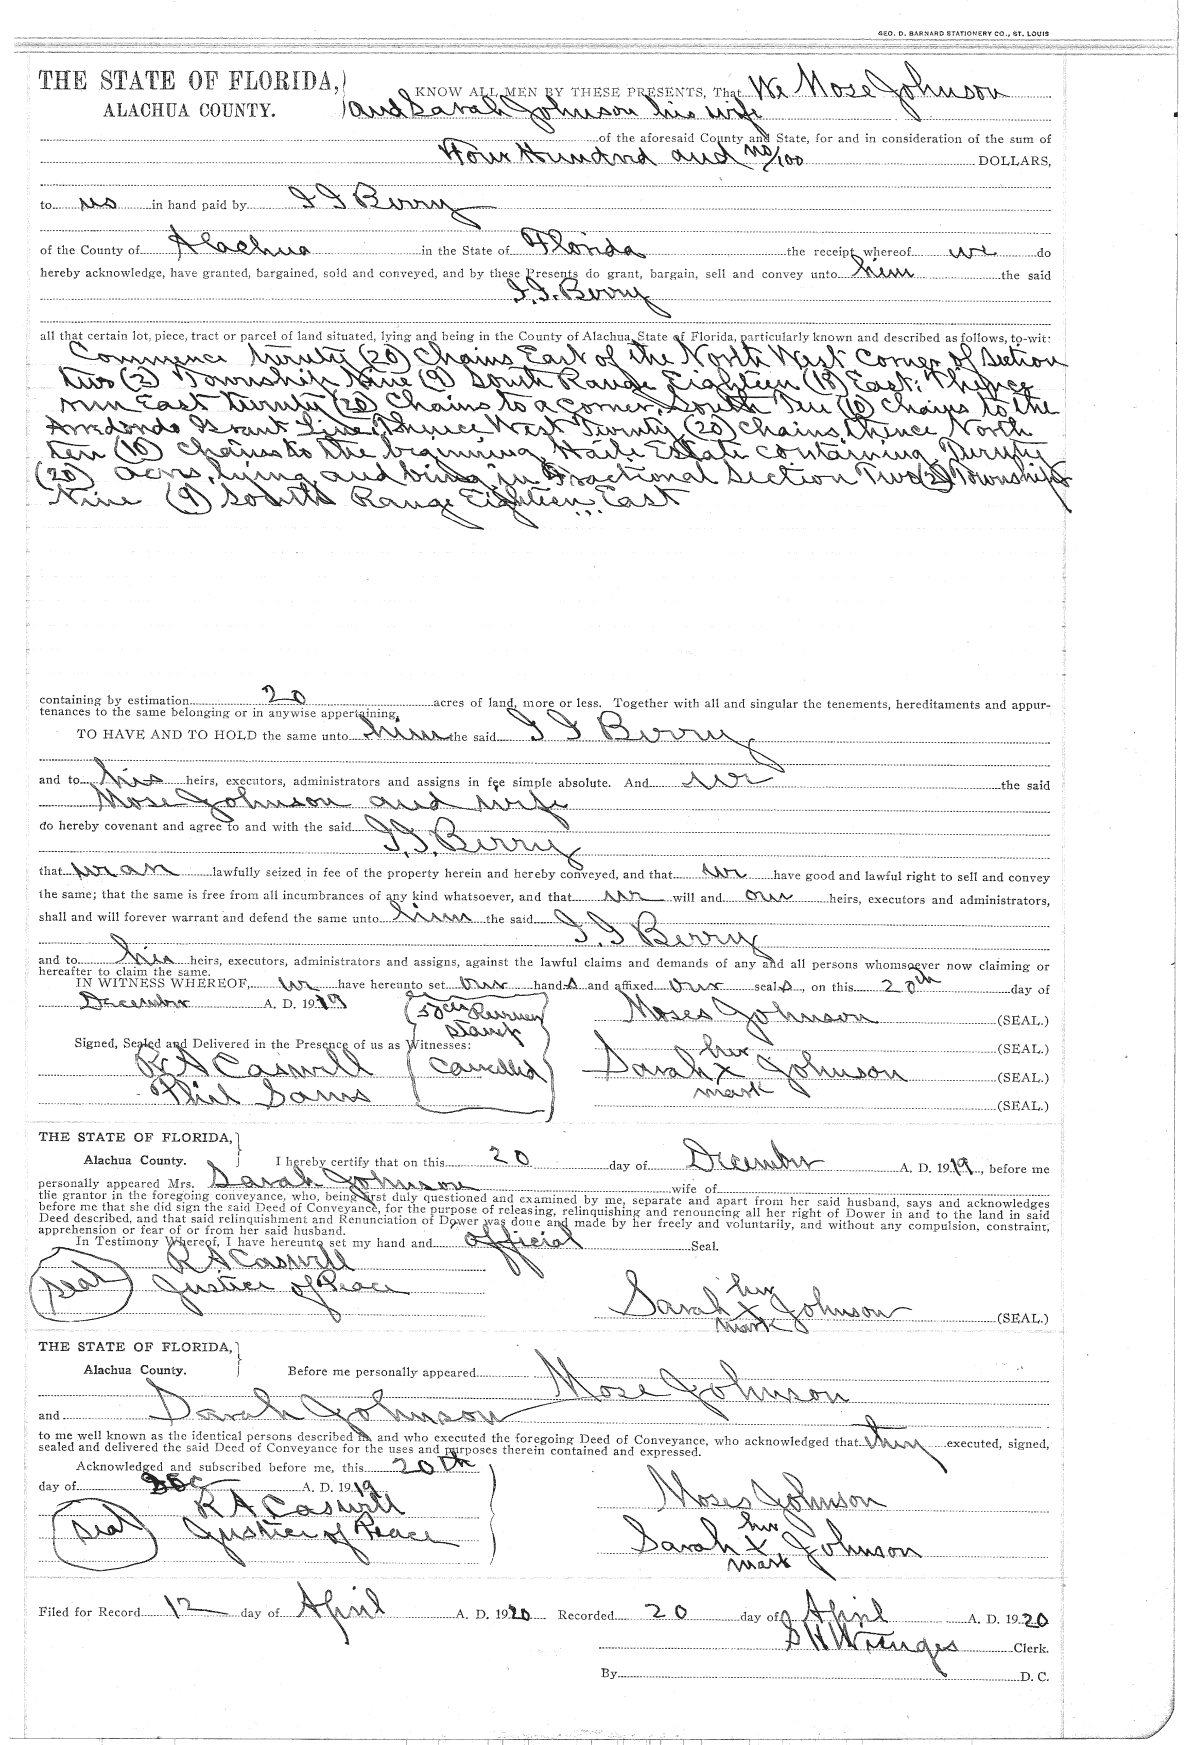 GEO. D. BARNARD STATIONERY CO., ST. LOUIS
THE STATE OF FLORIDA,
ALACHUA COUNTY.
KNOW ALL MEN BY THESE PRESENTS, That We Mose Johnson
and Sarah Johnson his wife
of the aforesaid County and State, for and in consideration of the sum of
Four Hundred and no/100 DOLLARS,
to us in hand paid by Berry
of the County of Alachua in the State of Florida the receipt whereof we do
hereby acknowledge, have granted, bargained, sold and conveyed, and by these Presents do grant, bargain, sell and convey unto him the said
Berry
all that certain lot, piece, tract or parcel of land situated, lying and being in the County of Alachua, State of Florida, particularly known and described as follows, to-wit:
Commence twenty (20) Chains East of the North West Corner of Section
two (2) Township Nine (9) South Range Eighteen (18) East: Thence
run East twenty (20) Chains to a corner, South Ten (10) Chains to the
Arredondo Grant Line, Thence West Twenty (20) Chains, thence North
ten (10) chains to the beginning, Haile Estate containing Twenty
(20) acres, lying and being in Fractional Section Two (2) Township
Nine (9) South Range Eighteen East
containing by estimation 20 acres of land, more or less. Together with all and singular the tenements, hereditaments and appur-
tenances to the same belonging or in anywise appertaining,
TO HAVE AND TO HOLD the same unto him the said Berry
and to his heirs, executors, administrators and assigns in fee simple absolute. And we the said
Mose Johnson and wife
do hereby covenant and agree to and with the said Berry
that we are lawfully seized in fee of the property herein and hereby conveyed, and that we have good and lawful right to sell and convey
the same; that the same is free from all incumbrances of any kind whatsoever, and that we will and our heirs, executors and administrators,
shall and will forever warrant and defend the same unto him the said Berry
and to his heirs, executors, administrators and assigns, against the lawful claims and demands of any and all persons whomsoever now claiming or
hereafter to claim the same.
IN WITNESS WHEREOF, we have hereunto set our hands and affixed our seals, on this 20th day of
December A. D. 1919 (50cts Revenue Moses Johnson (SEAL.)
stamp
Signed, Sealed and Delivered in the Presence of us as Witnesses: her (SEAL.)
R A Caswell Cancelled) Sarah X Johnson (SEAL.)
Phil Sams mark (SEAL.)
THE STATE OF FLORIDA,
Alachua County. I hereby certify that on this 20 day of December A. D. 1919, before me
personally appeared Mrs. Sarah Johnson wife of
the grantor in the foregoing conveyance, who, being first duly questioned and examined by me, separate and apart from her said husband, says and acknowledges
before me that she did sign the said Deed of Conveyance, for the purpose of releasing, relinquishing and renouncing all her right of Dower in and to the land in said
Deed described, and that said relinquishment and Renunciation of Dower was done and made by her freely and voluntarily, and without any compulsion, constraint,
apprehension or fear of or from her said husband.
In Testimony Whereof, I have hereunto set my hand and official Seal.
R A Caswell
(seal) Justice of Peace her
Sarah X Johnson (SEAL.)
mark
THE STATE OF FLORIDA,
Alachua County. Before me personally appeared Mose Johnson
and Sarah Johnson
to me well known as the identical persons described in and who executed the foregoing Deed of Conveyance, who acknowledged that they executed, signed,
sealed and delivered the said Deed of Conveyance for the uses and purposes therein contained and expressed.
Acknowledged and subscribed before me, this 20th
day of Dec A. D. 1919 Moses Johnson
R A Caswell
(seal) Justice of Peace her
Sarah X Johnson
mark
Filed for Record 12 day of April A. D. 1920 Recorded 20 day of April A. D. 1920
S H Wienges Clerk.
By D. C.